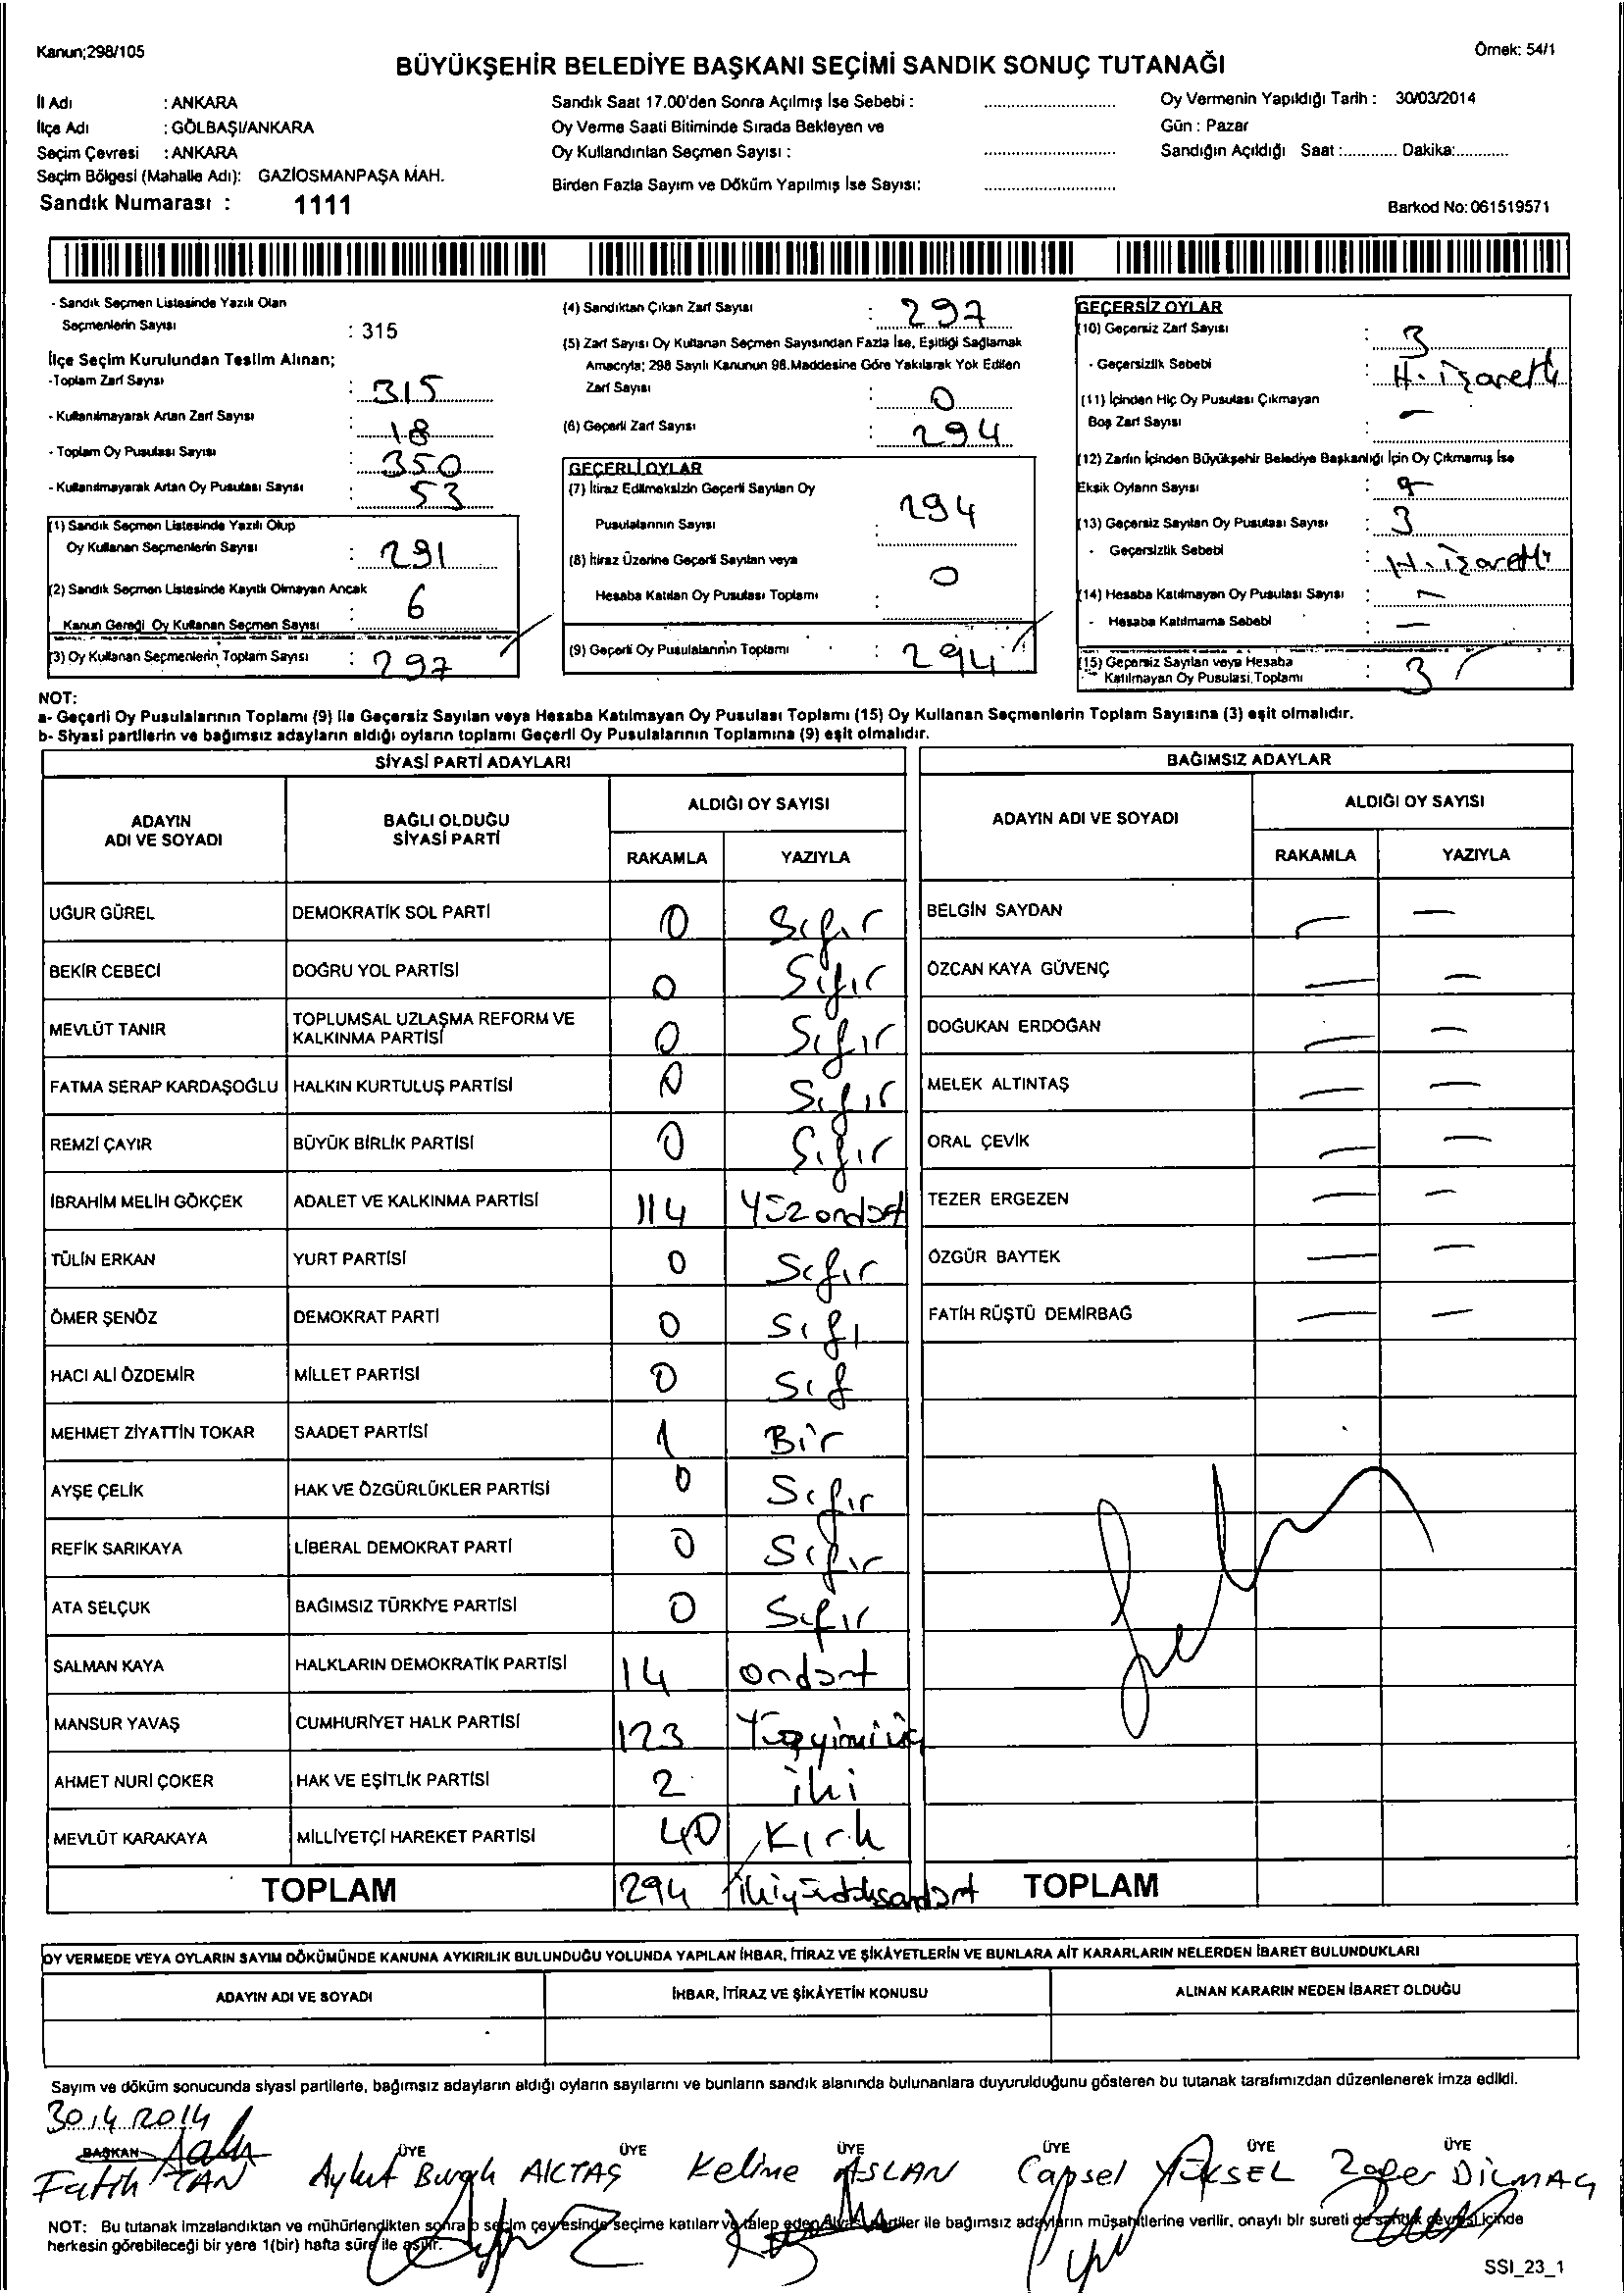 Kanun;298/105
Örnek: 54/1
BÜYÜKŞEHİR BELEDİYE BAŞKANI SEÇİMİ SANDIK SONUÇ TUTANAĞI
İl Adı : ANKARA
İlçe Adı : GÖLBAŞI/ANKARA
Seçim Çevresi : ANKARA
Seçim Bölgesi (Mahalle Adı): GAZİOSMANPAŞA MAH.
Sandık Numarası : 1111
Sandık Saat 17.00'den Sonra Açılmış İse Sebebi :
Oy Verme Saati Bitiminde Sırada Bekleyen ve
Oy Kullandırılan Seçmen Sayısı :
Birden Fazla Sayım ve Döküm Yapılmış İse Sayısı:
Oy Vermenin Yapıldığı Tarih : 30/03/2014
Gün : Pazar
Sandığın Açıldığı Saat :............ Dakika:............
Barkod No: 061519571
- Sandık Seçmen Listesinde Yazılı Olan
Seçmenlerin Sayısı : 315
İlçe Seçim Kurulundan Teslim Alınan;
-Toplam Zarf Sayısı : 315
- Kullanılmayarak Artan Zarf Sayısı : 18
- Toplam Oy Pusulası Sayısı : 350
- Kullanılmayarak Artan Oy Pusulası Sayısı : 53
(1) Sandık Seçmen Listesinde Yazılı Olup
Oy Kullanan Seçmenlerin Sayısı : 291
(2) Sandık Seçmen Listesinde Kayıtlı Olmayan Ancak
Kanun Gereği Oy Kullanan Seçmen Sayısı : 6
(3) Oy Kullanan Seçmenlerin Toplam Sayısı : 297
(4) Sandıktan Çıkan Zarf Sayısı : 297
(5) Zarf Sayısı Oy Kullanan Seçmen Sayısından Fazla İse, Eşitliği Sağlamak
Amacıyla; 298 Sayılı Kanunun 98.Maddesine Göre Yakılarak Yok Edilen
Zarf Sayısı : 0
(6) Geçerli Zarf Sayısı : 294
GEÇERLİ OYLAR
(7) İtiraz Edilmeksizin Geçerli Sayılan Oy
Pusulalarının Sayısı : 294
(8) İtiraz Üzerine Geçerli Sayılan veya
Hesaba Katılan Oy Pusulası Toplamı : 0
(9) Geçerli Oy Pusulalarının Toplamı : 294
GEÇERSİZ OYLAR
(10) Geçersiz Zarf Sayısı : 3
- Geçersizlik Sebebi : H. işaretli
(11) İçinden Hiç Oy Pusulası Çıkmayan
Boş Zarf Sayısı : —
(12) Zarfın İçinden Büyükşehir Belediye Başkanlığı İçin Oy Çıkmamış İse
Eksik Oyların Sayısı :
(13) Geçersiz Sayılan Oy Pusulası Sayısı : 3
- Geçersizlik Sebebi : H. işaretli
(14) Hesaba Katılmayan Oy Pusulası Sayısı : —
- Hesaba Katılmama Sebebi : —
(15) Geçersiz Sayılan veya Hesaba
Katılmayan Oy Pusulası Toplamı : 3
NOT:
a- Geçerli Oy Pusulalarının Toplamı (9) ile Geçersiz Sayılan veya Hesaba Katılmayan Oy Pusulası Toplamı (15) Oy Kullanan Seçmenlerin Toplam Sayısına (3) eşit olmalıdır.
b- Siyasi partilerin ve bağımsız adayların aldığı oyların toplamı Geçerli Oy Pusulalarının Toplamına (9) eşit olmalıdır.
SİYASİ PARTİ ADAYLARI
ADAYIN ADI VE SOYADI BAĞLI OLDUĞU SİYASİ PARTİ ALDIĞI OY SAYISI
RAKAMLA YAZIYLA
UĞUR GÜREL DEMOKRATİK SOL PARTİ 0 Sıfır
BEKİR CEBECİ DOĞRU YOL PARTİSİ 0 Sıfır
MEVLÜT TANIR TOPLUMSAL UZLAŞMA REFORM VE KALKINMA PARTİSİ 0 Sıfır
FATMA SERAP KARDAŞOĞLU HALKIN KURTULUŞ PARTİSİ 0 Sıfır
REMZİ ÇAYIR BÜYÜK BİRLİK PARTİSİ 0 Sıfır
İBRAHİM MELİH GÖKÇEK ADALET VE KALKINMA PARTİSİ 114 Yüzondört
TÜLİN ERKAN YURT PARTİSİ 0 Sıfır
ÖMER ŞENÖZ DEMOKRAT PARTİ 0 Sıfı
HACI ALİ ÖZDEMİR MİLLET PARTİSİ 0 Sıf
MEHMET ZİYATTİN TOKAR SAADET PARTİSİ 1 Bir
AYŞE ÇELİK HAK VE ÖZGÜRLÜKLER PARTİSİ 0 Sıfır
REFİK SARIKAYA LİBERAL DEMOKRAT PARTİ 0 Sıfır
ATA SELÇUK BAĞIMSIZ TÜRKİYE PARTİSİ 0 Sıfır
SALMAN KAYA HALKLARIN DEMOKRATİK PARTİSİ 14 ondört
MANSUR YAVAŞ CUMHURİYET HALK PARTİSİ 123
AHMET NURİ ÇOKER HAK VE EŞİTLİK PARTİSİ 2 iki
MEVLÜT KARAKAYA MİLLİYETÇİ HAREKET PARTİSİ 40 Kırk
TOPLAM 294
BAĞIMSIZ ADAYLAR
ADAYIN ADI VE SOYADI ALDIĞI OY SAYISI
RAKAMLA YAZIYLA
BELGİN SAYDAN — —
ÖZCAN KAYA GÜVENÇ — —
DOĞUKAN ERDOĞAN — —
MELEK ALTINTAŞ — —
ORAL ÇEVİK — —
TEZER ERGEZEN — —
ÖZGÜR BAYTEK — —
FATİH RÜŞTÜ DEMİRBAĞ — —
TOPLAM
OY VERMEDE VEYA OYLARIN SAYIM DÖKÜMÜNDE KANUNA AYKIRILIK BULUNDUĞU YOLUNDA YAPILAN İHBAR, İTİRAZ VE ŞİKÂYETLERİN VE BUNLARA AİT KARARLARIN NELERDEN İBARET BULUNDUKLARI
ADAYIN ADI VE SOYADI İHBAR, İTİRAZ VE ŞİKÂYETİN KONUSU ALINAN KARARIN NEDEN İBARET OLDUĞU
Sayım ve döküm sonucunda siyasi partilerle, bağımsız adayların aldığı oyların sayılarını ve bunların sandık alanında bulunanlara duyurulduğunu gösteren bu tutanak tarafımızdan düzenlenerek imza edildi.
30.4.2014
BAŞKAN ÜYE ÜYE ÜYE ÜYE ÜYE ÜYE
Fatih TAN Aykut Burak AKTAŞ Kelime ASLAN Capsel YÜKSEL Zafer DİLMAÇ
NOT: Bu tutanak imzalandıktan ve mühürlendikten sonra o seçim çevresinde seçime katılan ve talep eden siyasi partiler ile bağımsız adayların müşahitlerine verilir, onaylı bir sureti de sandık çevresi içinde
herkesin görebileceği bir yere 1(bir) hafta süre ile asılır.
SSI_23_1